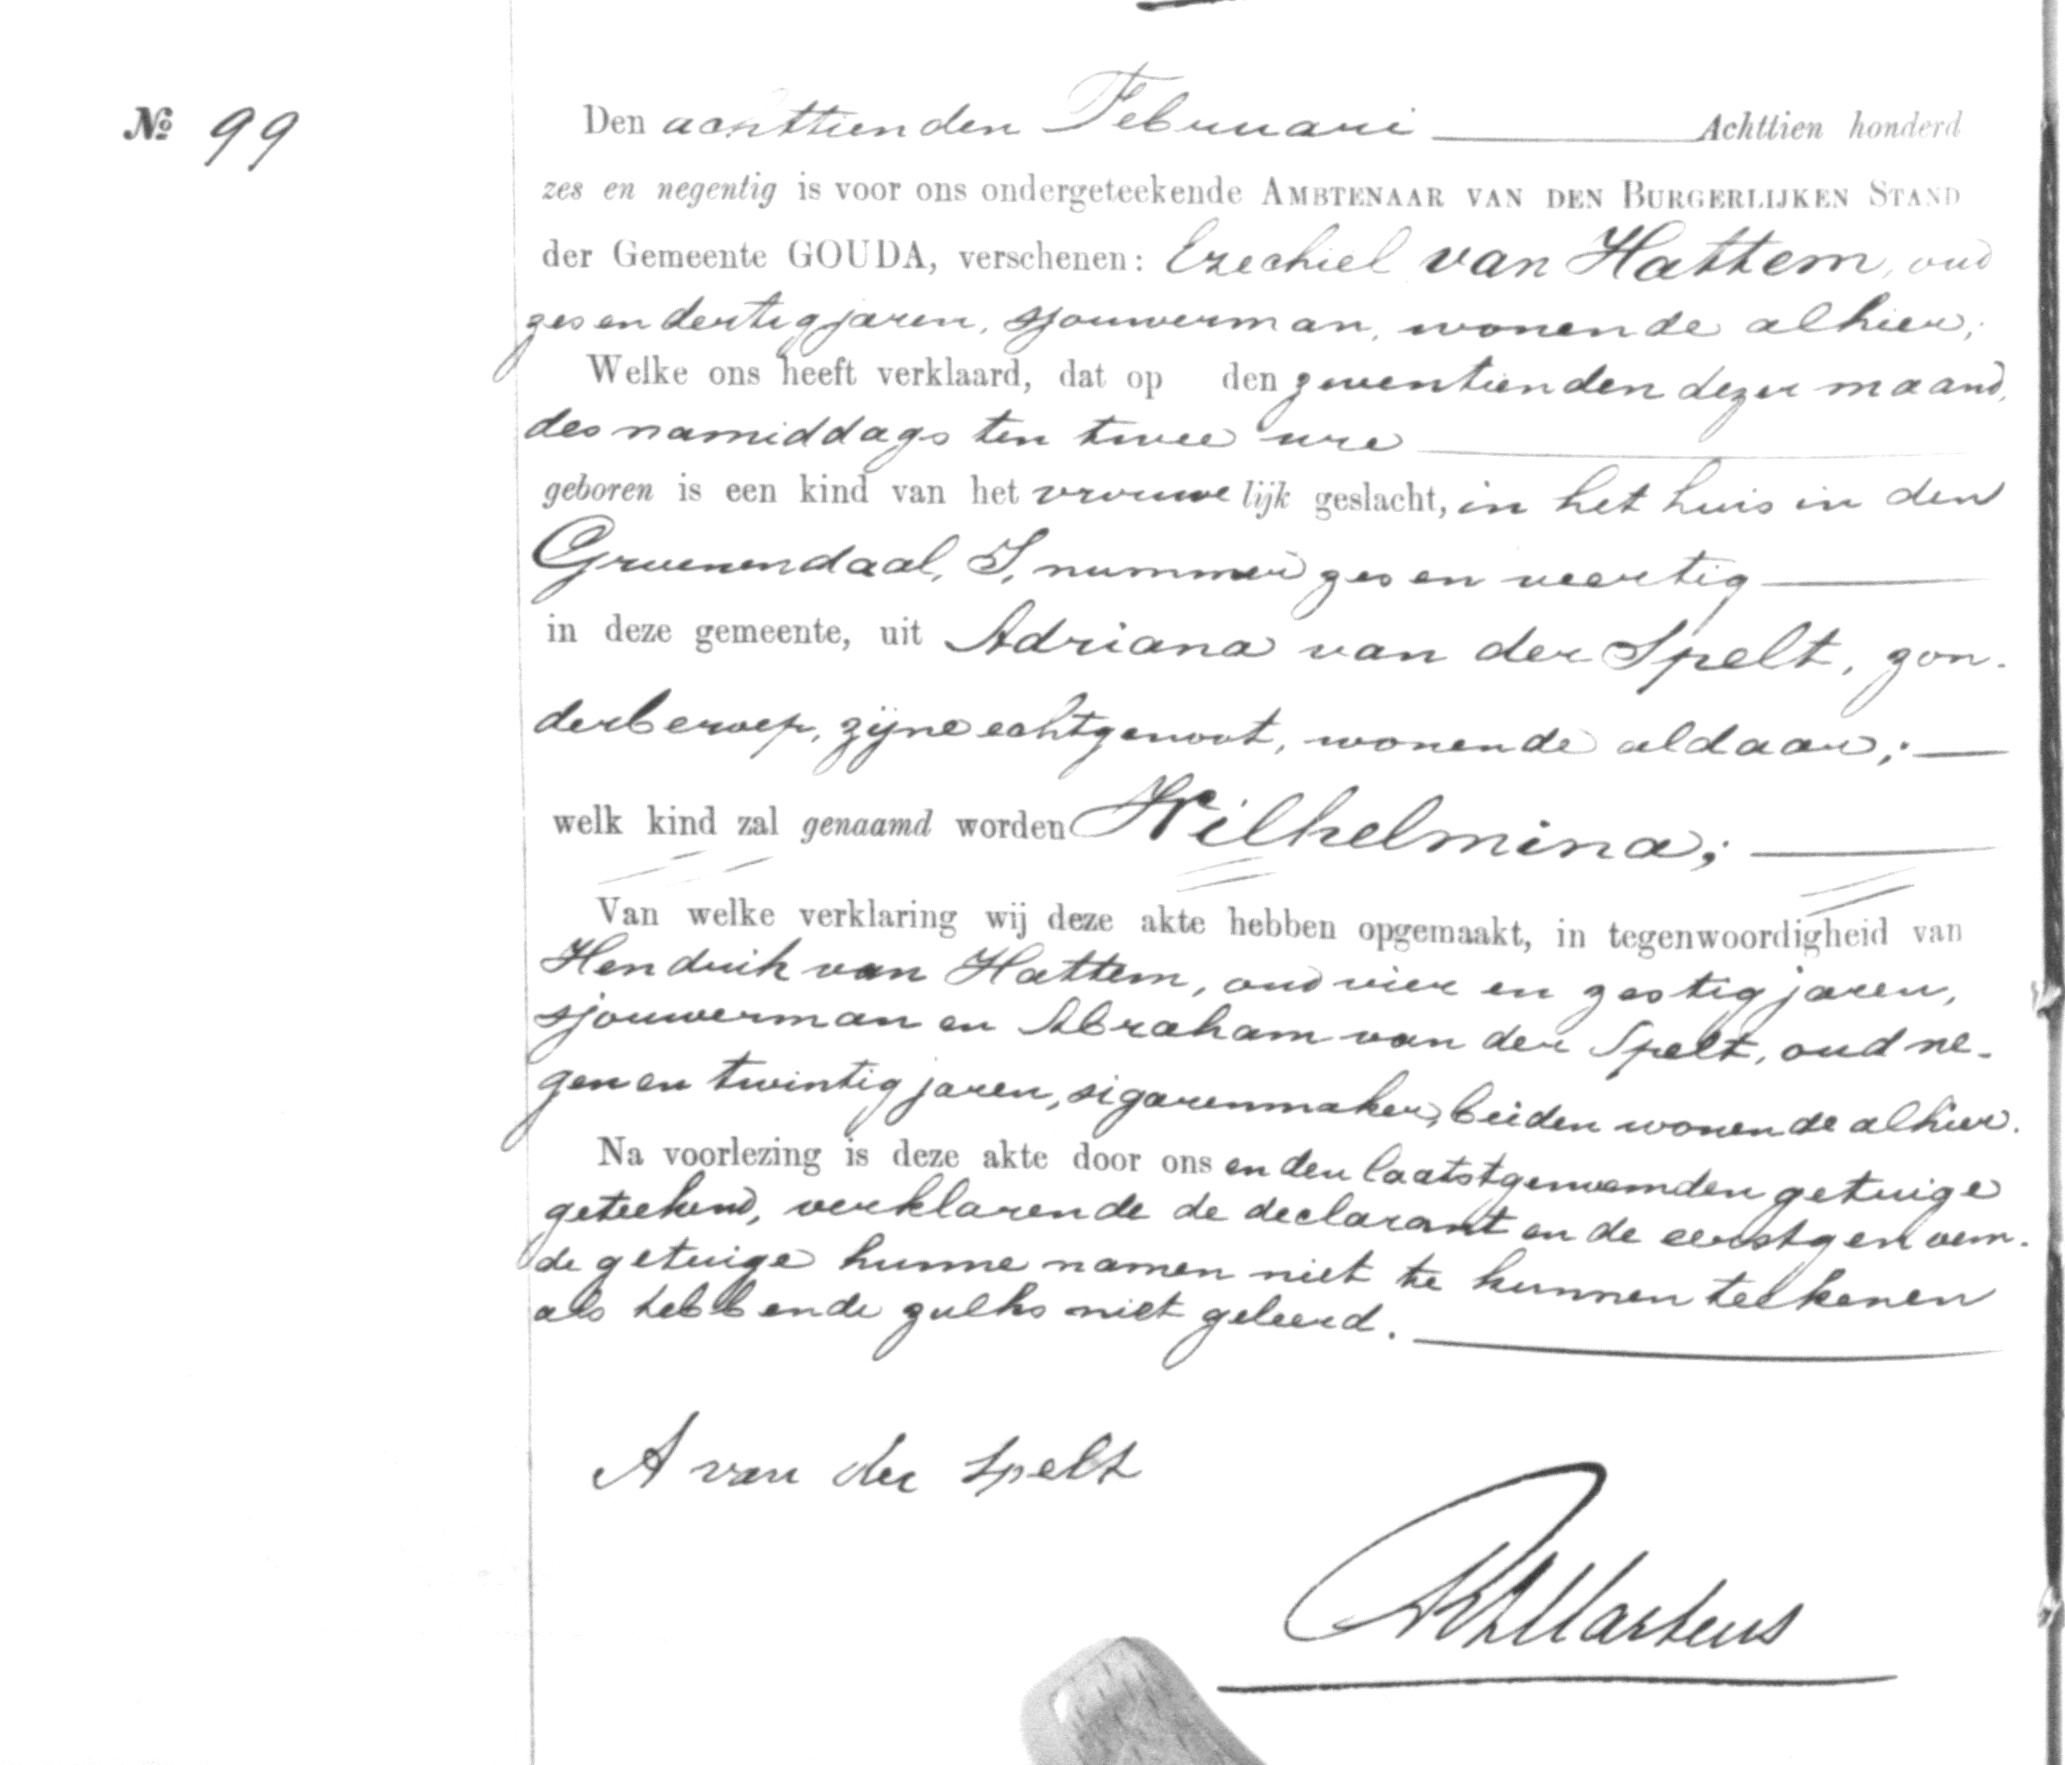 № 99
Den achttienden Februari Achttien honderd
zes en negentig is voor ons ondergeteekende AMBTENAAR VAN DEN BURGERLIJKEN STAND
der Gemeente GOUDA, verschenen: Ezechiel van Hattem, oud
zes en dertig jaren, sjouwerman, wonende alhier;
Welke ons heeft verklaard, dat op den zeventienden dezer maand,
des namiddags ten twee ure
geboren is een kind van het vrouwelijk geslacht, in het huis in den
Groenendaal, I, nummer zes en veertig
in deze gemeente, uit Adriana van der Spelt, zon-
der beroep, zijne echtgenoot, wonende aldaar;
welk kind zal genaamd worden Wilhelmina;
Van welke verklaring wij deze akte hebben opgemaakt, in tegenwoordigheid van
Hendrik van Hattem, oud vier en zestig jaren,
sjouwerman en Abraham van der Spelt, oud ne-
gen en twintig jaren, sigarenmaker, beiden wonende alhier.
Na voorlezing is deze akte door ons en den laatstgenoemden getuige
geteekend, verklarende de declarant en de eerstgenoem-
de getuige hunne namen niet te kunnen teekenen
als hebbende zulks niet geleerd.
A van der Spelt
Martens